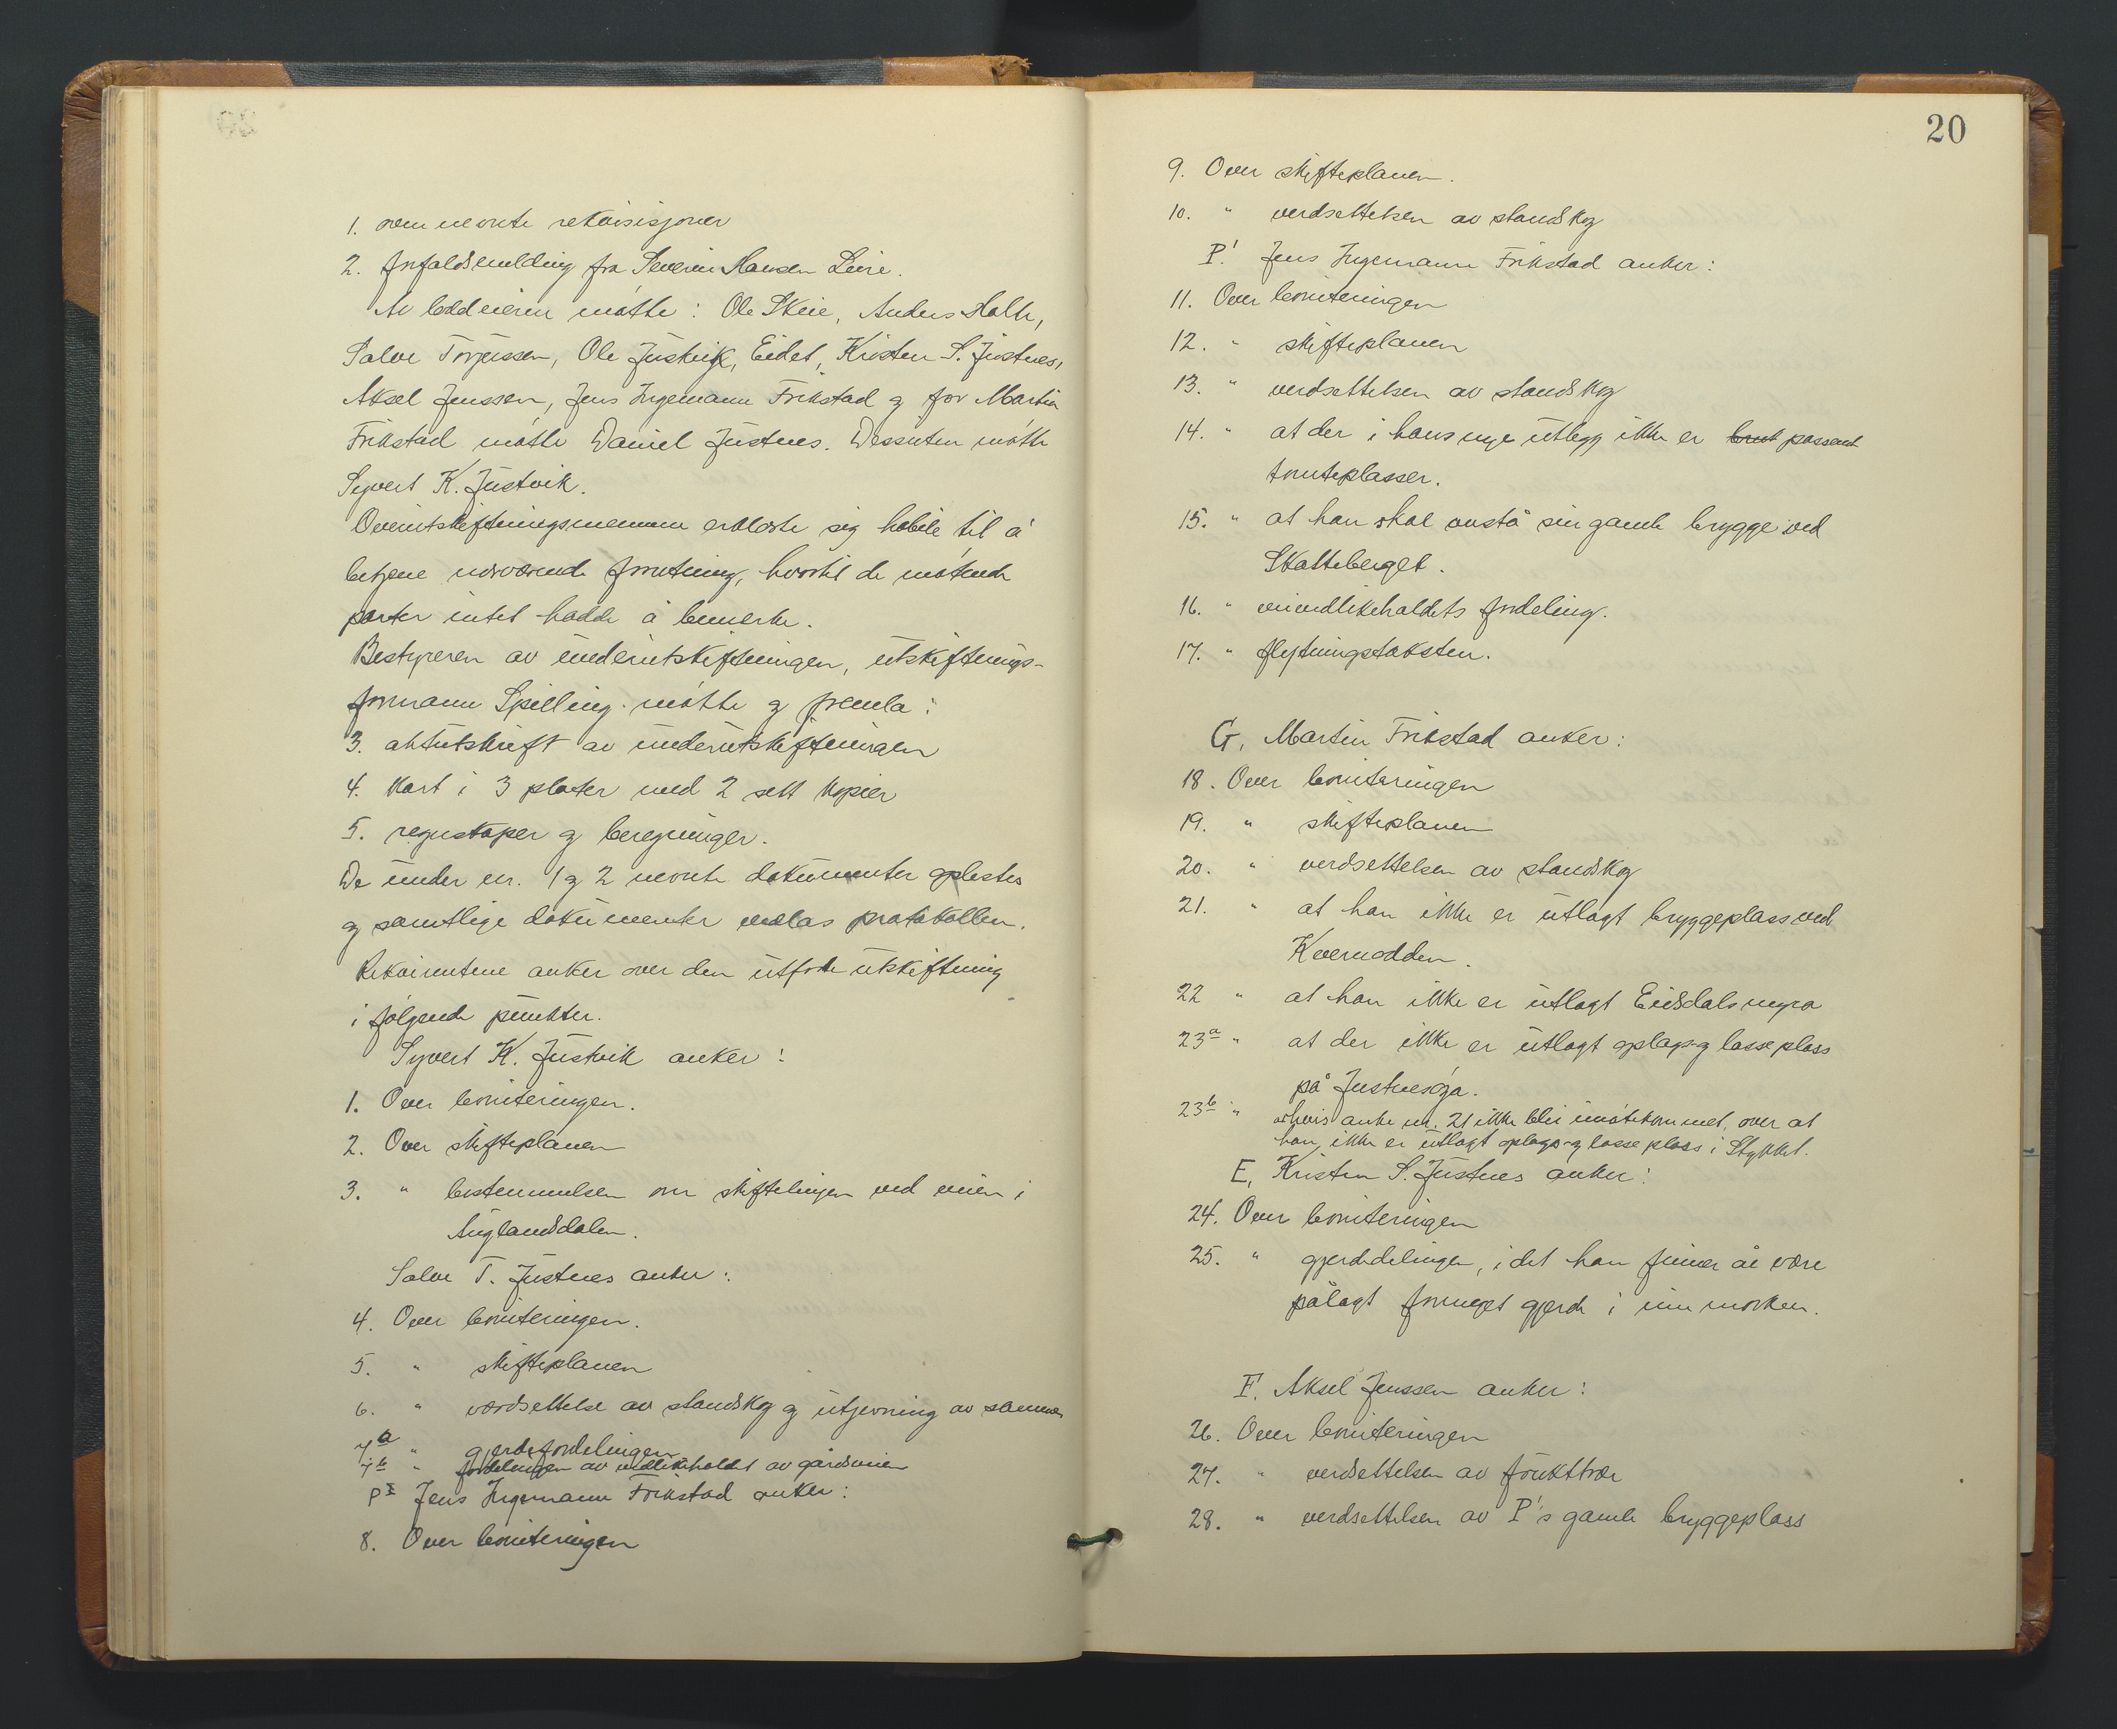 1. ovennevnte rekvisisjoner
2. forfaldsmelding fra Severin Hansen Leire.
Av loddeierne møtte: Ole Skeie, Anders Holte,
Salve Torjussen, Ole Justvik, Eidet, Kristen S. Justnes,
Aksel Jenssen, Jens Ingemann Frikstad og for Martin
Frikstad møtte Daniel Justnes. Dessuten møtte
Syvert K. Justvik.
Overutskiftningsmennene erklærte sig habile til å
betjene nærværende forretning, hvortil de møtende
parter intet hadde å bemerke.
Bestyreren av underutskiftningen, utskiftnings-
formann Spilling møtte og fremla:
3. aktutskrift av underutskiftningen
4. Kart i 3 plater med 2 sett kopier
5. regnskaper og beregninger.
De under nr. 1 og 2 nevnte dokumenter oplestes
og samtlige dokumenter vedlas protokollen.
Rekvirentene anker over den utførte utskiftning
i følgende punkter.
Syvert K. Justvik anker:
1. Over boniteringen.
2. Over skifteplanen
3. " bestemmelsen om skiftelinjen ved veien i
Auglandsdalen.
Salve T. Justnes anker:
4. Over boniteringen.
5. " skifteplanen
6. " værdsettelse av standskog og utjevning av samme
7a " gjerdefordelingen
7b " fordelingen av vedlikeholdet av gårdsveien
PI Jens Ingemann Frikstad anker:
8. Over boniteringen
20
9. Over skifteplanen.
10. " verdsettelsen av standskog
P1 Jens Ingemann Frikstad anker:
11. Over boniteringen
12. " skifteplanen
13. " verdsettelsen av standskog
14. " at der i hans nye utlegg ikke er passende
tomteplasser.
15. " at han skal avstå sin gamle brygge ved
Skatteberget.
16. " veivedlikeholdets fordeling.
17. " flytningstaksten.
G, Martin Frikstad anker:
18. Over boniteringen
19. " skifteplanen
20. " verdsettelsen av standskog
21. " at han ikke er utlagt bryggeplass ved
Kvernodden.
22 " at han ikke er utlagt Eidsdalsmyra
23a " at der ikke er utlagt oplags og losseplass
på Justnesøya.
23b " hvis anke nr. 21 ikke blir imøtekommet, over at
han ikke er utlagt oplags- og losseplass i Stykket.
E, Kristen S. Justnes anker:
24. Over boniteringen
25. " gjerdedelingen, idet han finner å være
pålagt formeget gjerde i innmarken.
F. Aksel Jenssen anker:
26. Over boniteringen
27. " verdsettelsen av frukttrær
28. " verdsettelsen av P1's gamle bryggeplass